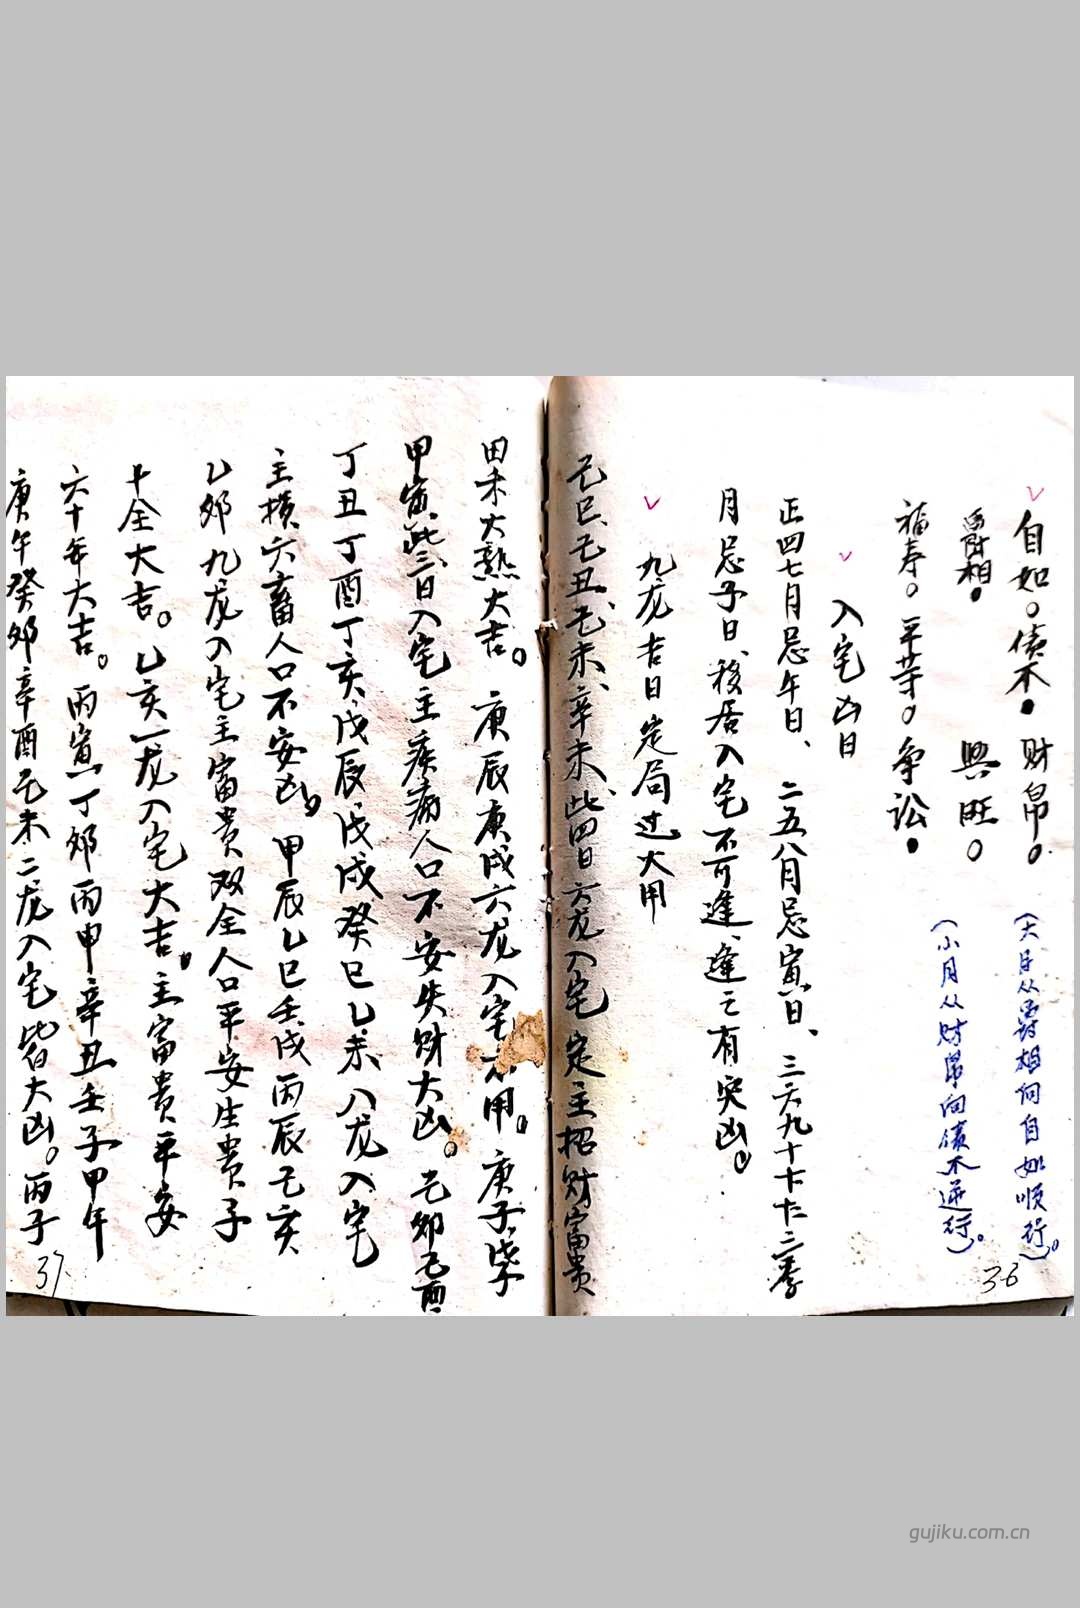 自如。债木● 财帛。
爵相● 興旺○
福寿○平等○争讼●
(大月从爵相向自如顺行)。
(小月从财帛向债木逆行)。
入宅凶日
正四七月忌午日、二五八月忌寅日、三六九十十十二季
月忌子日、移居入宅不可逢、逢之有灾凶。
九龙吉日定局过大用
己巳、己丑、己未、辛未、此四日六龙入宅 定主招财富贵
田禾大熟大吉。庚辰庚戌六龙入宅不用。庚子戊子
甲寅此三日入宅主疾病人口不安失财大凶。己卯己酉
丁丑丁酉丁亥、戊辰、戊戌癸巳乙未八龙入宅
主横六畜人口不安凶。甲辰乙巳壬戌丙辰己亥
乙卯九龙入宅主富贵双全人口平安生贵子
十全大吉。乙亥一龙入宅大吉。主富贵平安
六十年大吉。丙寅丁卯丙申辛丑壬子甲午
庚午癸卯辛酉己未二龙入宅皆大凶。丙子
37
36
gujiku.com.cn